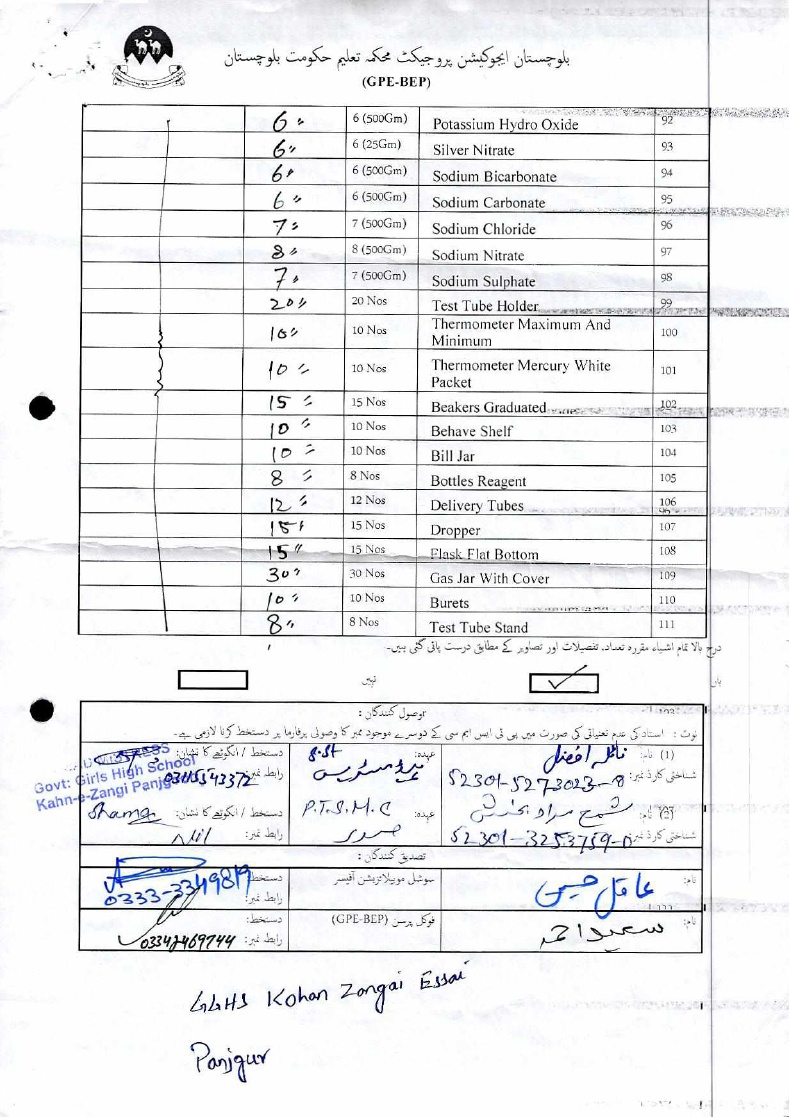 بلوچستان ایجوکیشن پروجیکٹ محکمہ تعلیم حکومت بلوچستان
(GPE-BEP)
6 〃 6 (500Gm) Potassium Hydro Oxide 92
6 〃 6 (25Gm) Silver Nitrate 93
6 〃 6 (500Gm) Sodium Bicarbonate 94
6 〃 6 (500Gm) Sodium Carbonate 95
7 〃 7 (500Gm) Sodium Chloride 96
8 〃 8 (500Gm) Sodium Nitrate 97
7 〃 7 (500Gm) Sodium Sulphate 98
20 〃 20 Nos Test Tube Holder 99
10 〃 10 Nos Thermometer Maximum And Minimum 100
10 〃 10 Nos Thermometer Mercury White Packet 101
15 〃 15 Nos Beakers Graduated 102
10 〃 10 Nos Behave Shelf 103
10 〃 10 Nos Bill Jar 104
8 〃 8 Nos Bottles Reagent 105
12 〃 12 Nos Delivery Tubes 106
15 〃 15 Nos Dropper 107
15 〃 15 Nos Flask Flat Bottom 108
30 〃 30 Nos Gas Jar With Cover 109
10 〃 10 Nos Burets 110
8 〃 8 Nos Test Tube Stand 111
درج بالا تمام اشیاء مقررہ تعداد، تفصیلات اور تصاویر کے مطابق درست پائی گئی ہیں۔
ہاں ✓ نہیں
وصول کنندگان :
نوٹ : استاد کی عدم تعیناتی کی صورت میں پی ٹی ایس ایم سی کے دوسرے موجود ممبر کا وصولی پرفارما پر دستخط کرنا لازمی ہے۔
(1) نام: عہدہ: دستخط / انگوٹھے کا نشان:
شناختی کارڈ نمبر: 52301-5273023-8 ہیڈ مسٹریس رابطہ نمبر:
Govt: Girls High School
Kahn-e-Zangi Panjgur
(2) نام: شمع مراد بخش عہدہ: P.T.S.M.C دستخط / انگوٹھے کا نشان: Shama
شناختی کارڈ نمبر: 52301-3253759-0 صدر رابطہ نمبر: Nil
تصدیق کنندگان :
نام: عاقل حسین سوشل موبیلائزیشن آفیسر دستخط:
رابطہ نمبر: 0333-3349819
نام: سعید احمد فوکل پرسن (GPE-BEP) دستخط:
رابطہ نمبر: 03342469744
GGHS Kohan Zongai Essai
Panjgur